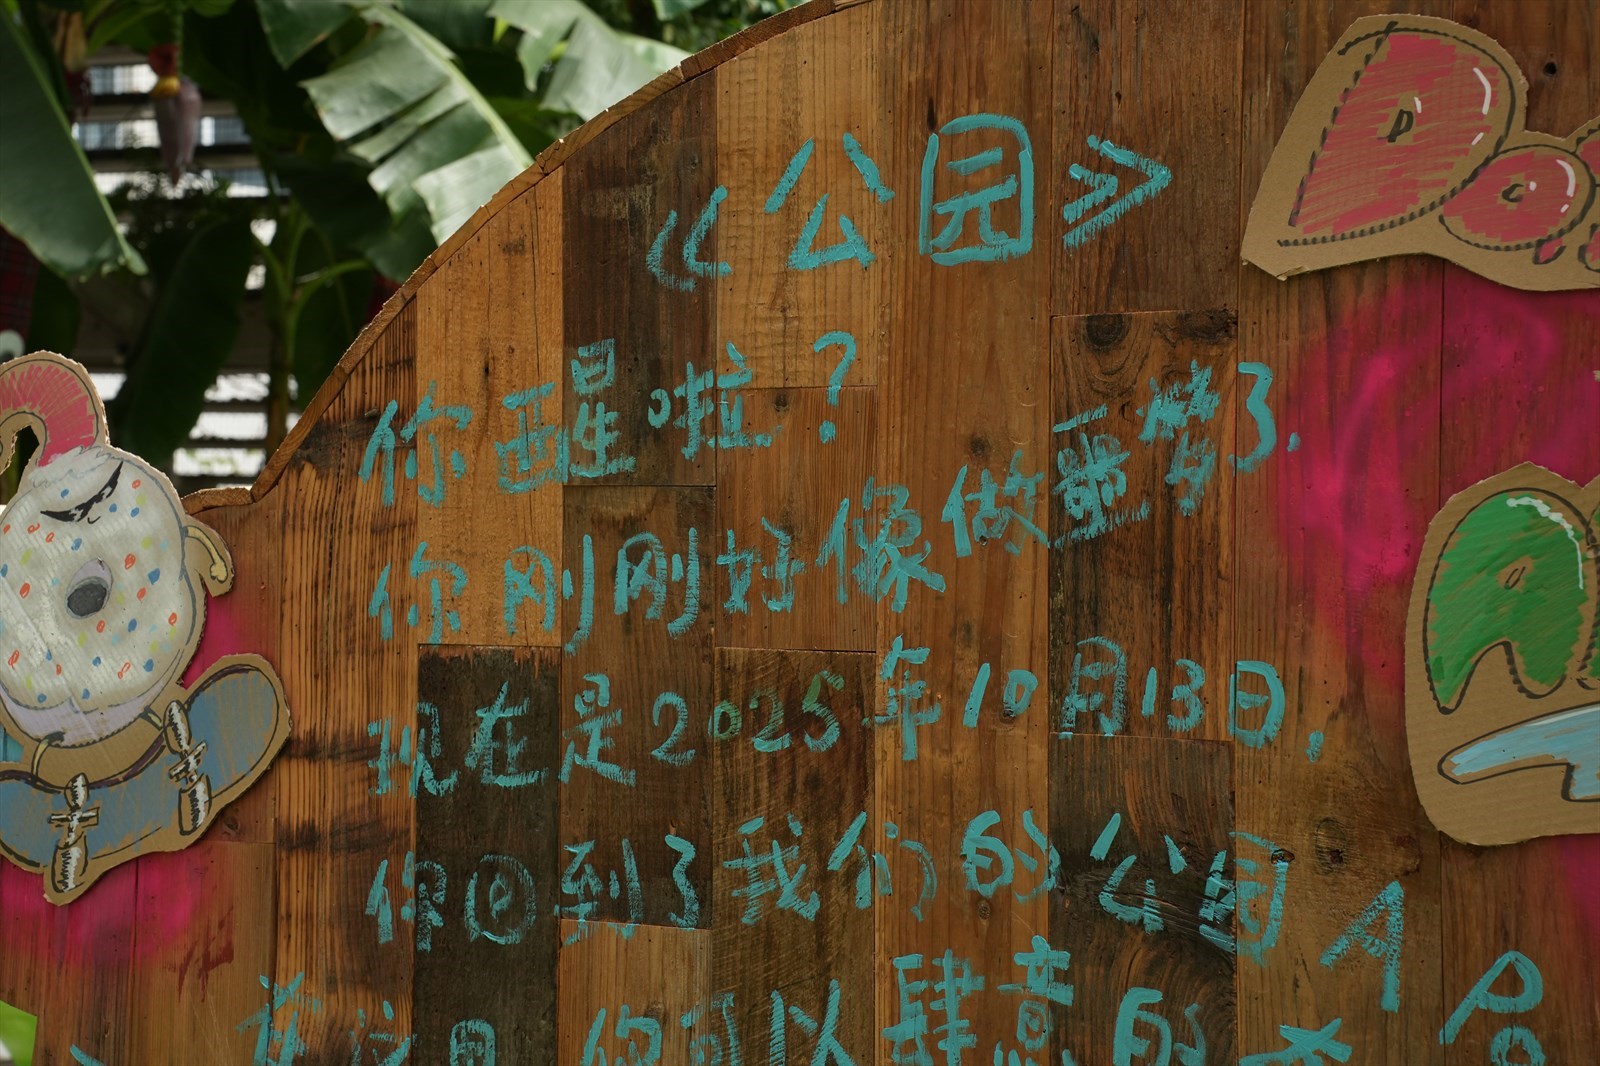 《公园》
你醒啦?
你刚刚好像做噩梦了,
现在是2025年10月13日,
你回到了我们的公园AP
在这里 你可以肆意的